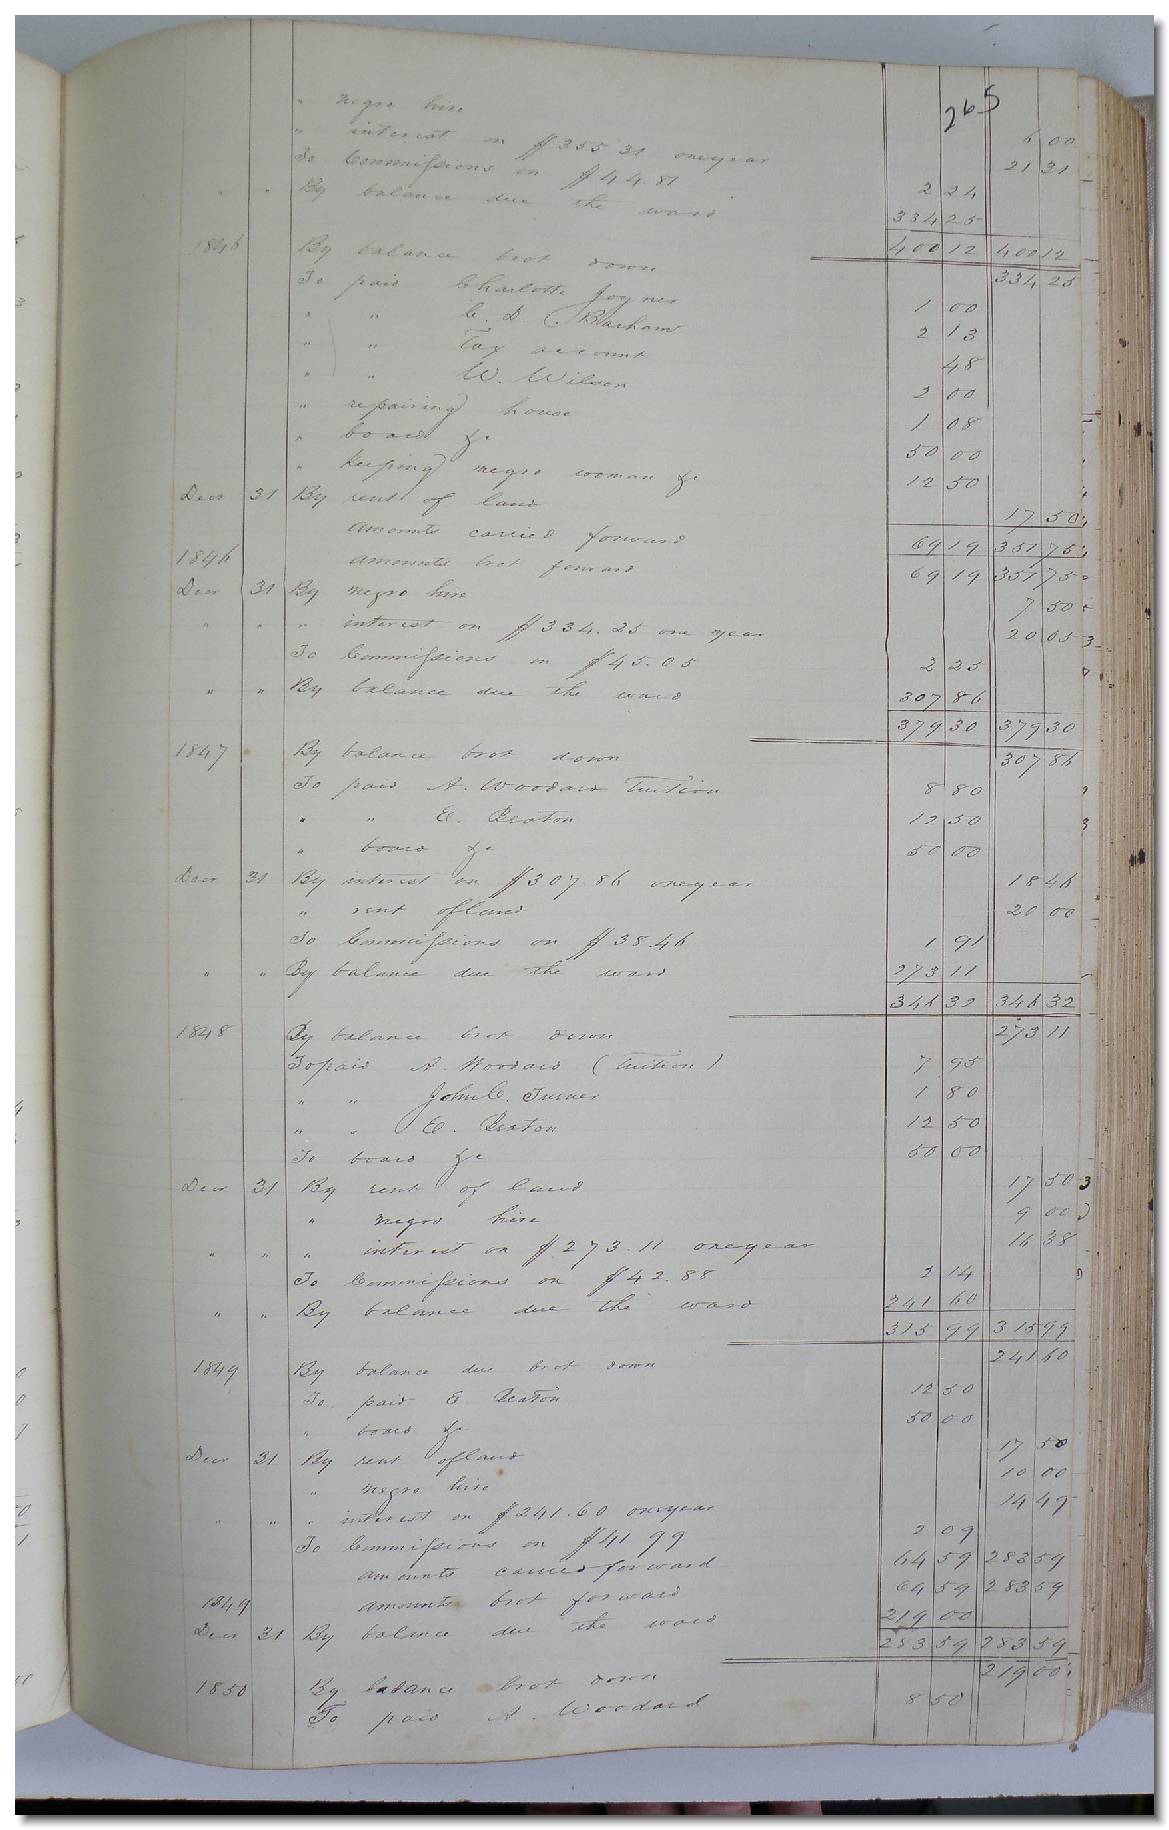 265
" negro hire 6 00
" interest on $355 21 oneyear 21 31
To Commissions on $44.81 2 24
" " By balance due the ward 334 25
400 12 400 12
1846 By balance brot down 334 25
To paid Charlotte Joyner 1 00
" " C. D Barham 2 13
" " Tax account 48
" " W. Wilson 2 00
" repairing house 1 08
" board &c 50 00
" keeping negro woman &c 12 50
Decr 31 By rent of land 17 50
amounts carried forward 69 19 351 75
1846 amounts brot forward 69 19 351 75
Decr 31 By negro hire 7 50
" " " interest on $334.25 one year 20 05
To Commissions on $45.05 2 25
" " By balance due the ward 307 86
379 30 379 30
1847 By balance brot down 307 86
To paid A. Woodard Tuition 8 80
" " E. Beaton 12 50
" board &c 50 00
Decr 31 By interest on $307.86 oneyear 18 46
" rent of land 20 00
To Commissions on $38.46 1 91
" " By balance due the ward 273 11
346 32 346 32
1848 By balance brot down 273 11
To paid A. Woodard (Tuition) 7 95
" " John C. Turner 1 80
" " E. Beaton 12 50
To board &c 50 00
Decr 31 By rent of land 17 50
" negro hire 9 00
" " " interest on $273.11 oneyear 16 38
To Commissions on $42.88 2 14
" " By balance due the ward 241 60
315 99 315 99
1849 By balance due brot down 241 60
To paid E. Beaton 12 50
" board &c 50 00
Decr 31 By rent of land 17 50
" negro hire 10 00
" " " interest on $241.60 oneyear 14 49
To Commissions on $41 99 2 09
amounts carried forward 64 59 283 59
1849 amounts brot forward 64 59 283 59
Decr 31 By balance due the ward 219 00
283 59 283 59
1850 By balance brot down 219 00
To paid A. Woodard 8 50